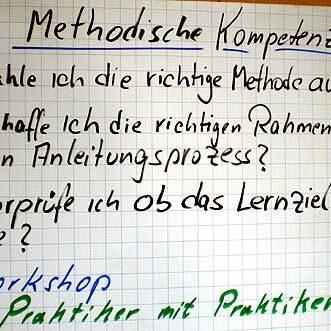 Methodische Kompetenz
hle ich die richtige Methode au
haffe ich die richtigen Rahmen
n Anleitungsprozess?
rprüfe ich ob das Lernziel
e?
orkshop
Praktiker mit Praktiker